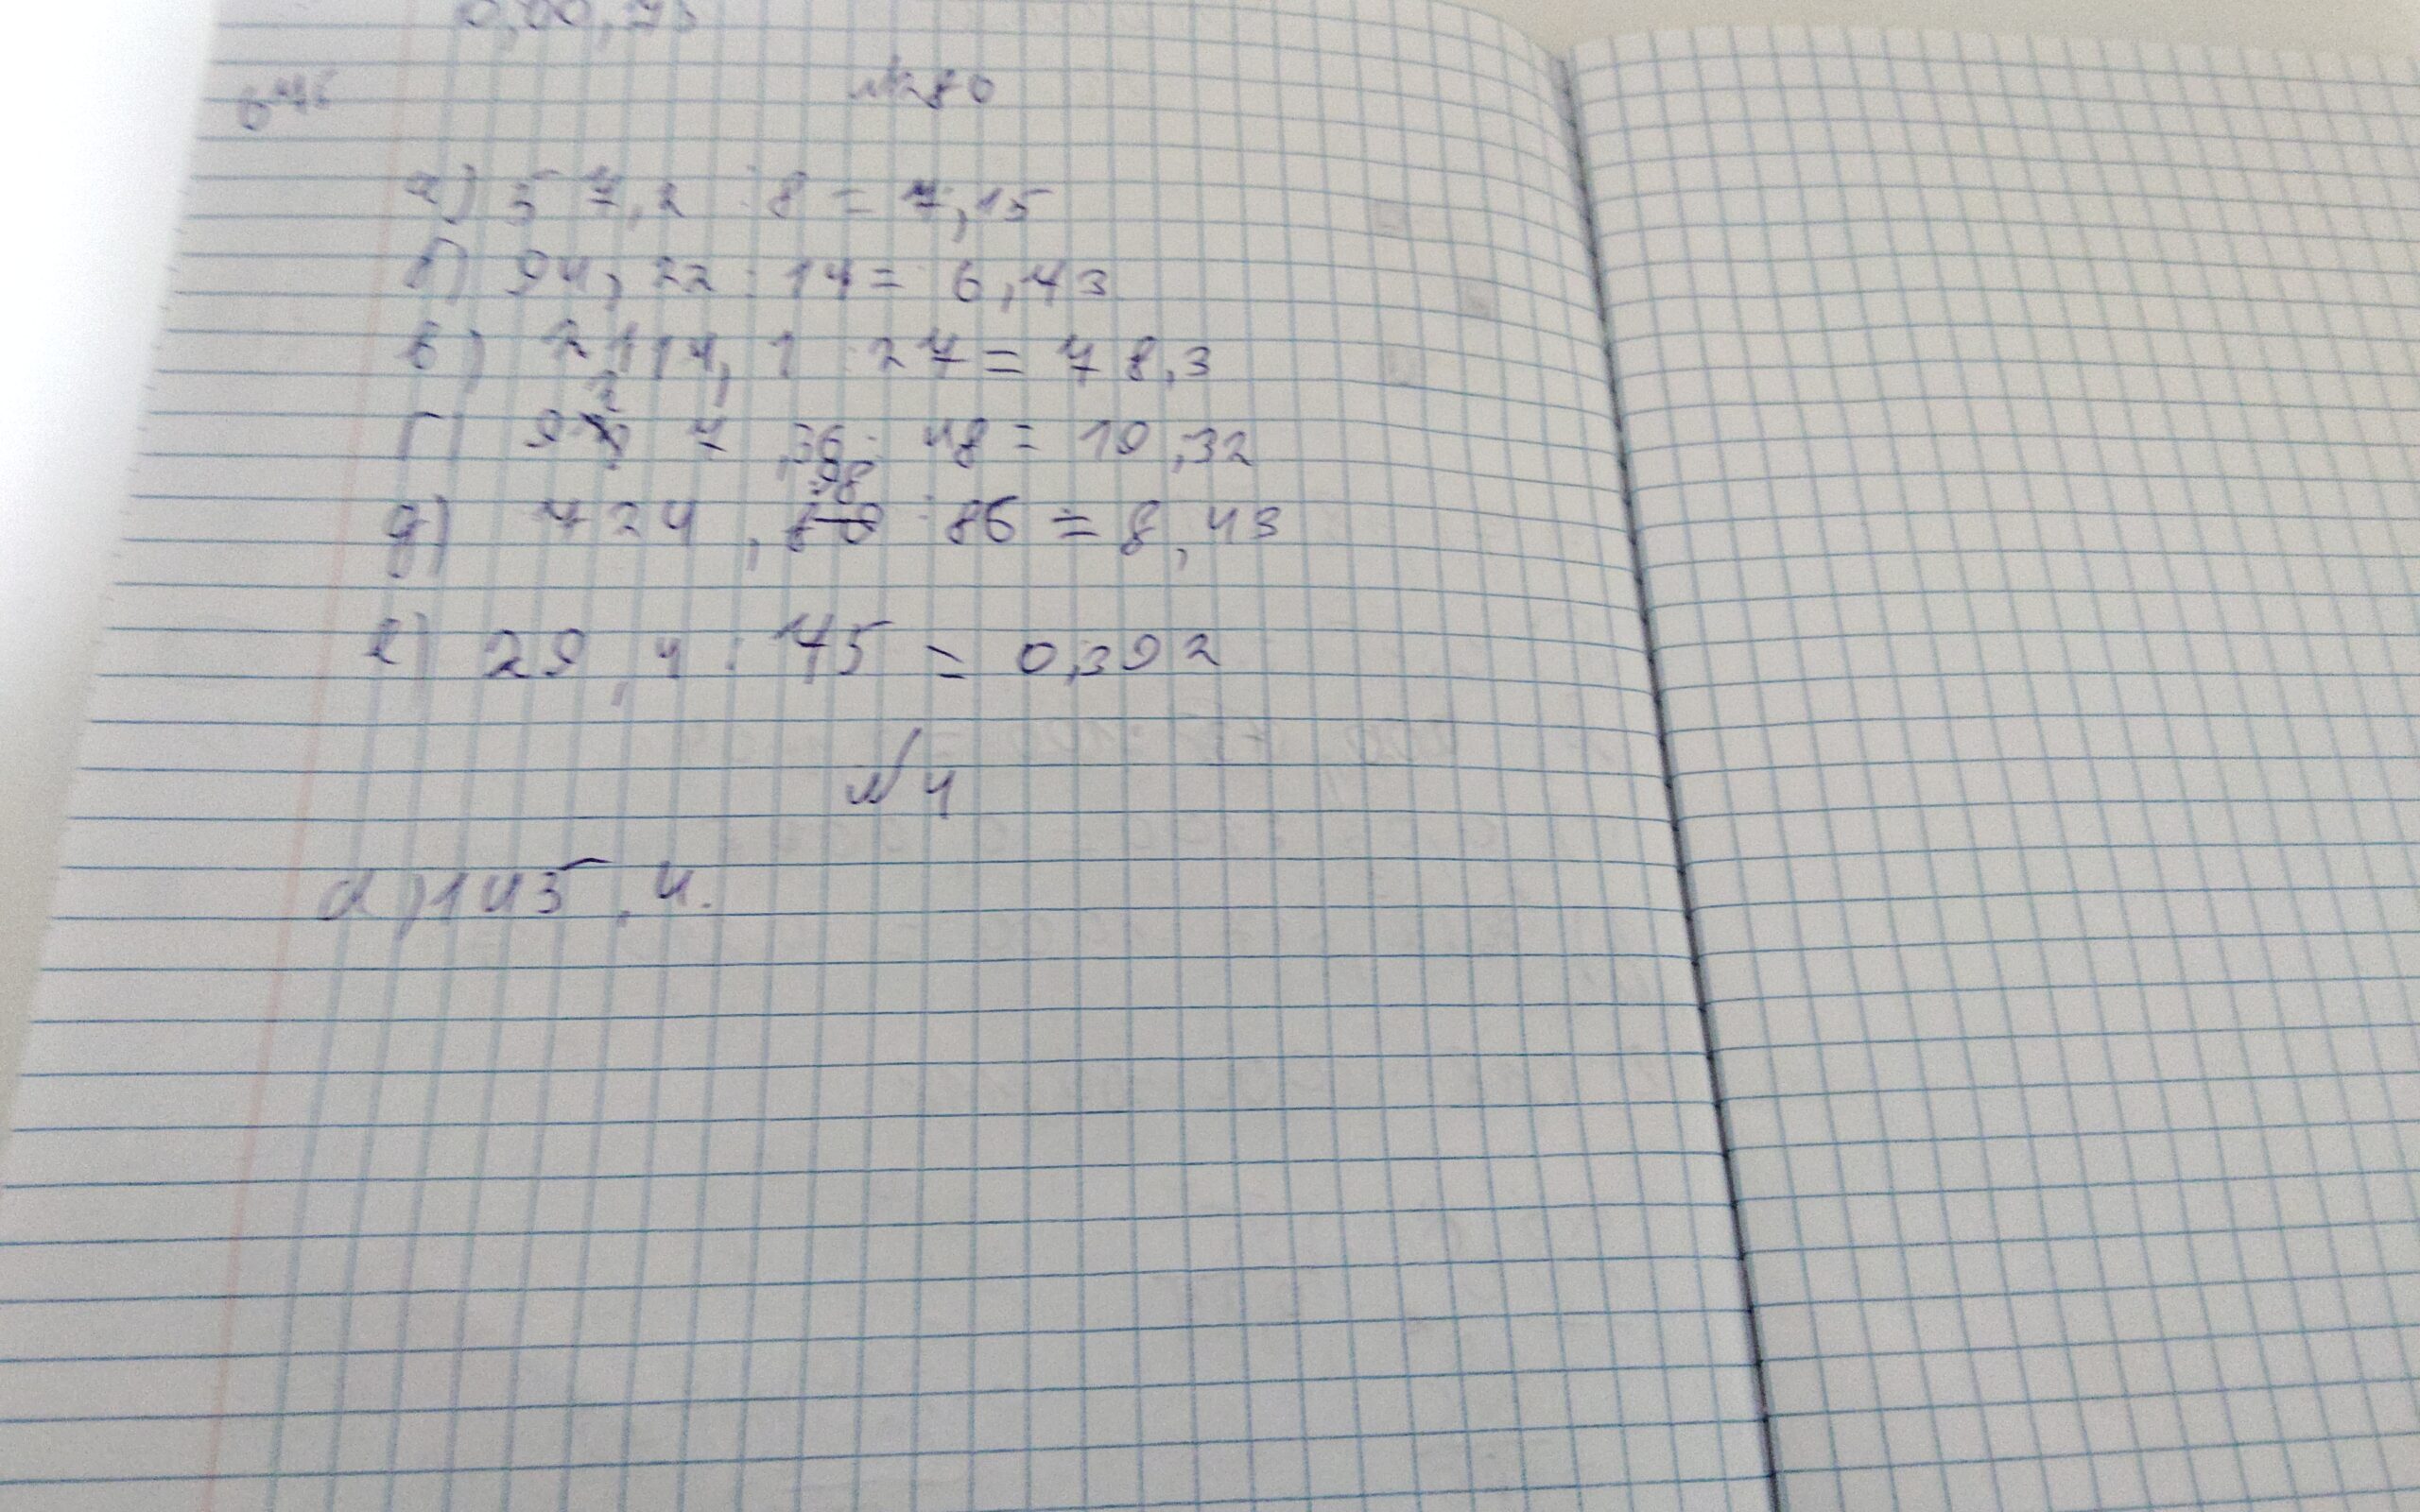 0,00,73
№280
а) 57,2 : 8 = 7,15
б) 94,22 : 14 = 6,73
в) 2114,1 : 27 = 78,3
г) 927,36 : 48 = 19,32
д) 724,98 : 86 = 8,43
е) 29,4 : 75 = 0,392
№4
а) 145,4.